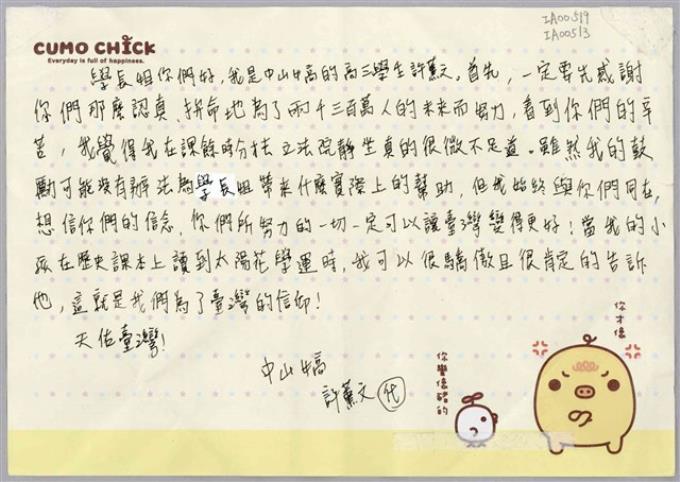 IA00519
IA00513
CUMO CHICK
Everyday is full of happiness.
學長姐你們好,我是中山女高的高三學生許薰文,首先,一定要先感謝
你們那麼認真、拼命地為了兩千三百萬人的未來而努力,看到你們的辛
苦,我覺得我在課餘時分去立法院靜坐真的很微不足道。雖然我的鼓
勵可能沒有辦法為學長姐帶來什麼實際上的幫助,但我始終與你們同在,
想信你們的信念,你們所努力的一切一定可以讓臺灣變得更好!當我的小
孩在歷史課本上讀到太陽花學運時,我可以很驕傲且很肯定的告訴
他,這就是我們為了臺灣的信仰!
天佑臺灣!
中山女高
許薰文 代
你才像
你蠻像豬的